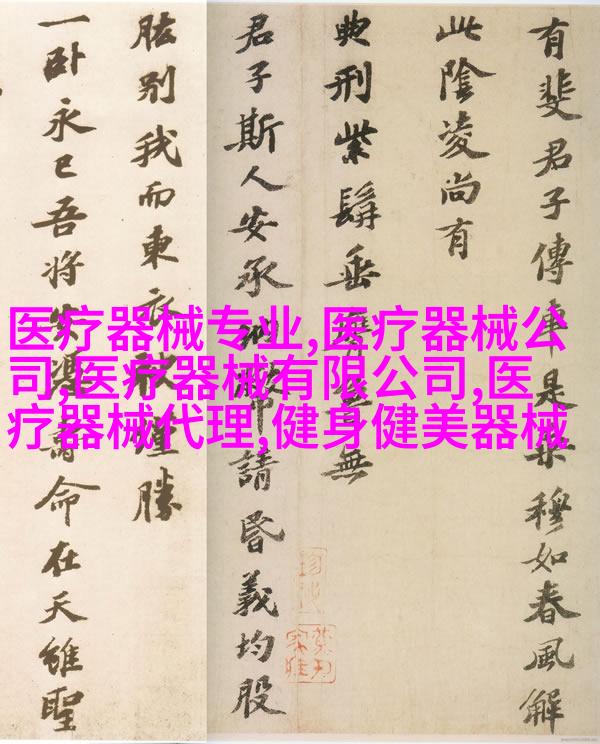 有斐君子傳車是乘穆如春風解
此陰凌尚有
典刑紫髯垂膺無
君子斯人安承納幣請昏義均股
肱别我而東衣袂僅勝
一卧永已吾將安憑壽命在天雖聖
医疗器械专业,医疗器械公
司,医疗器械有限公司,医
疗器械代理,健身健美器械